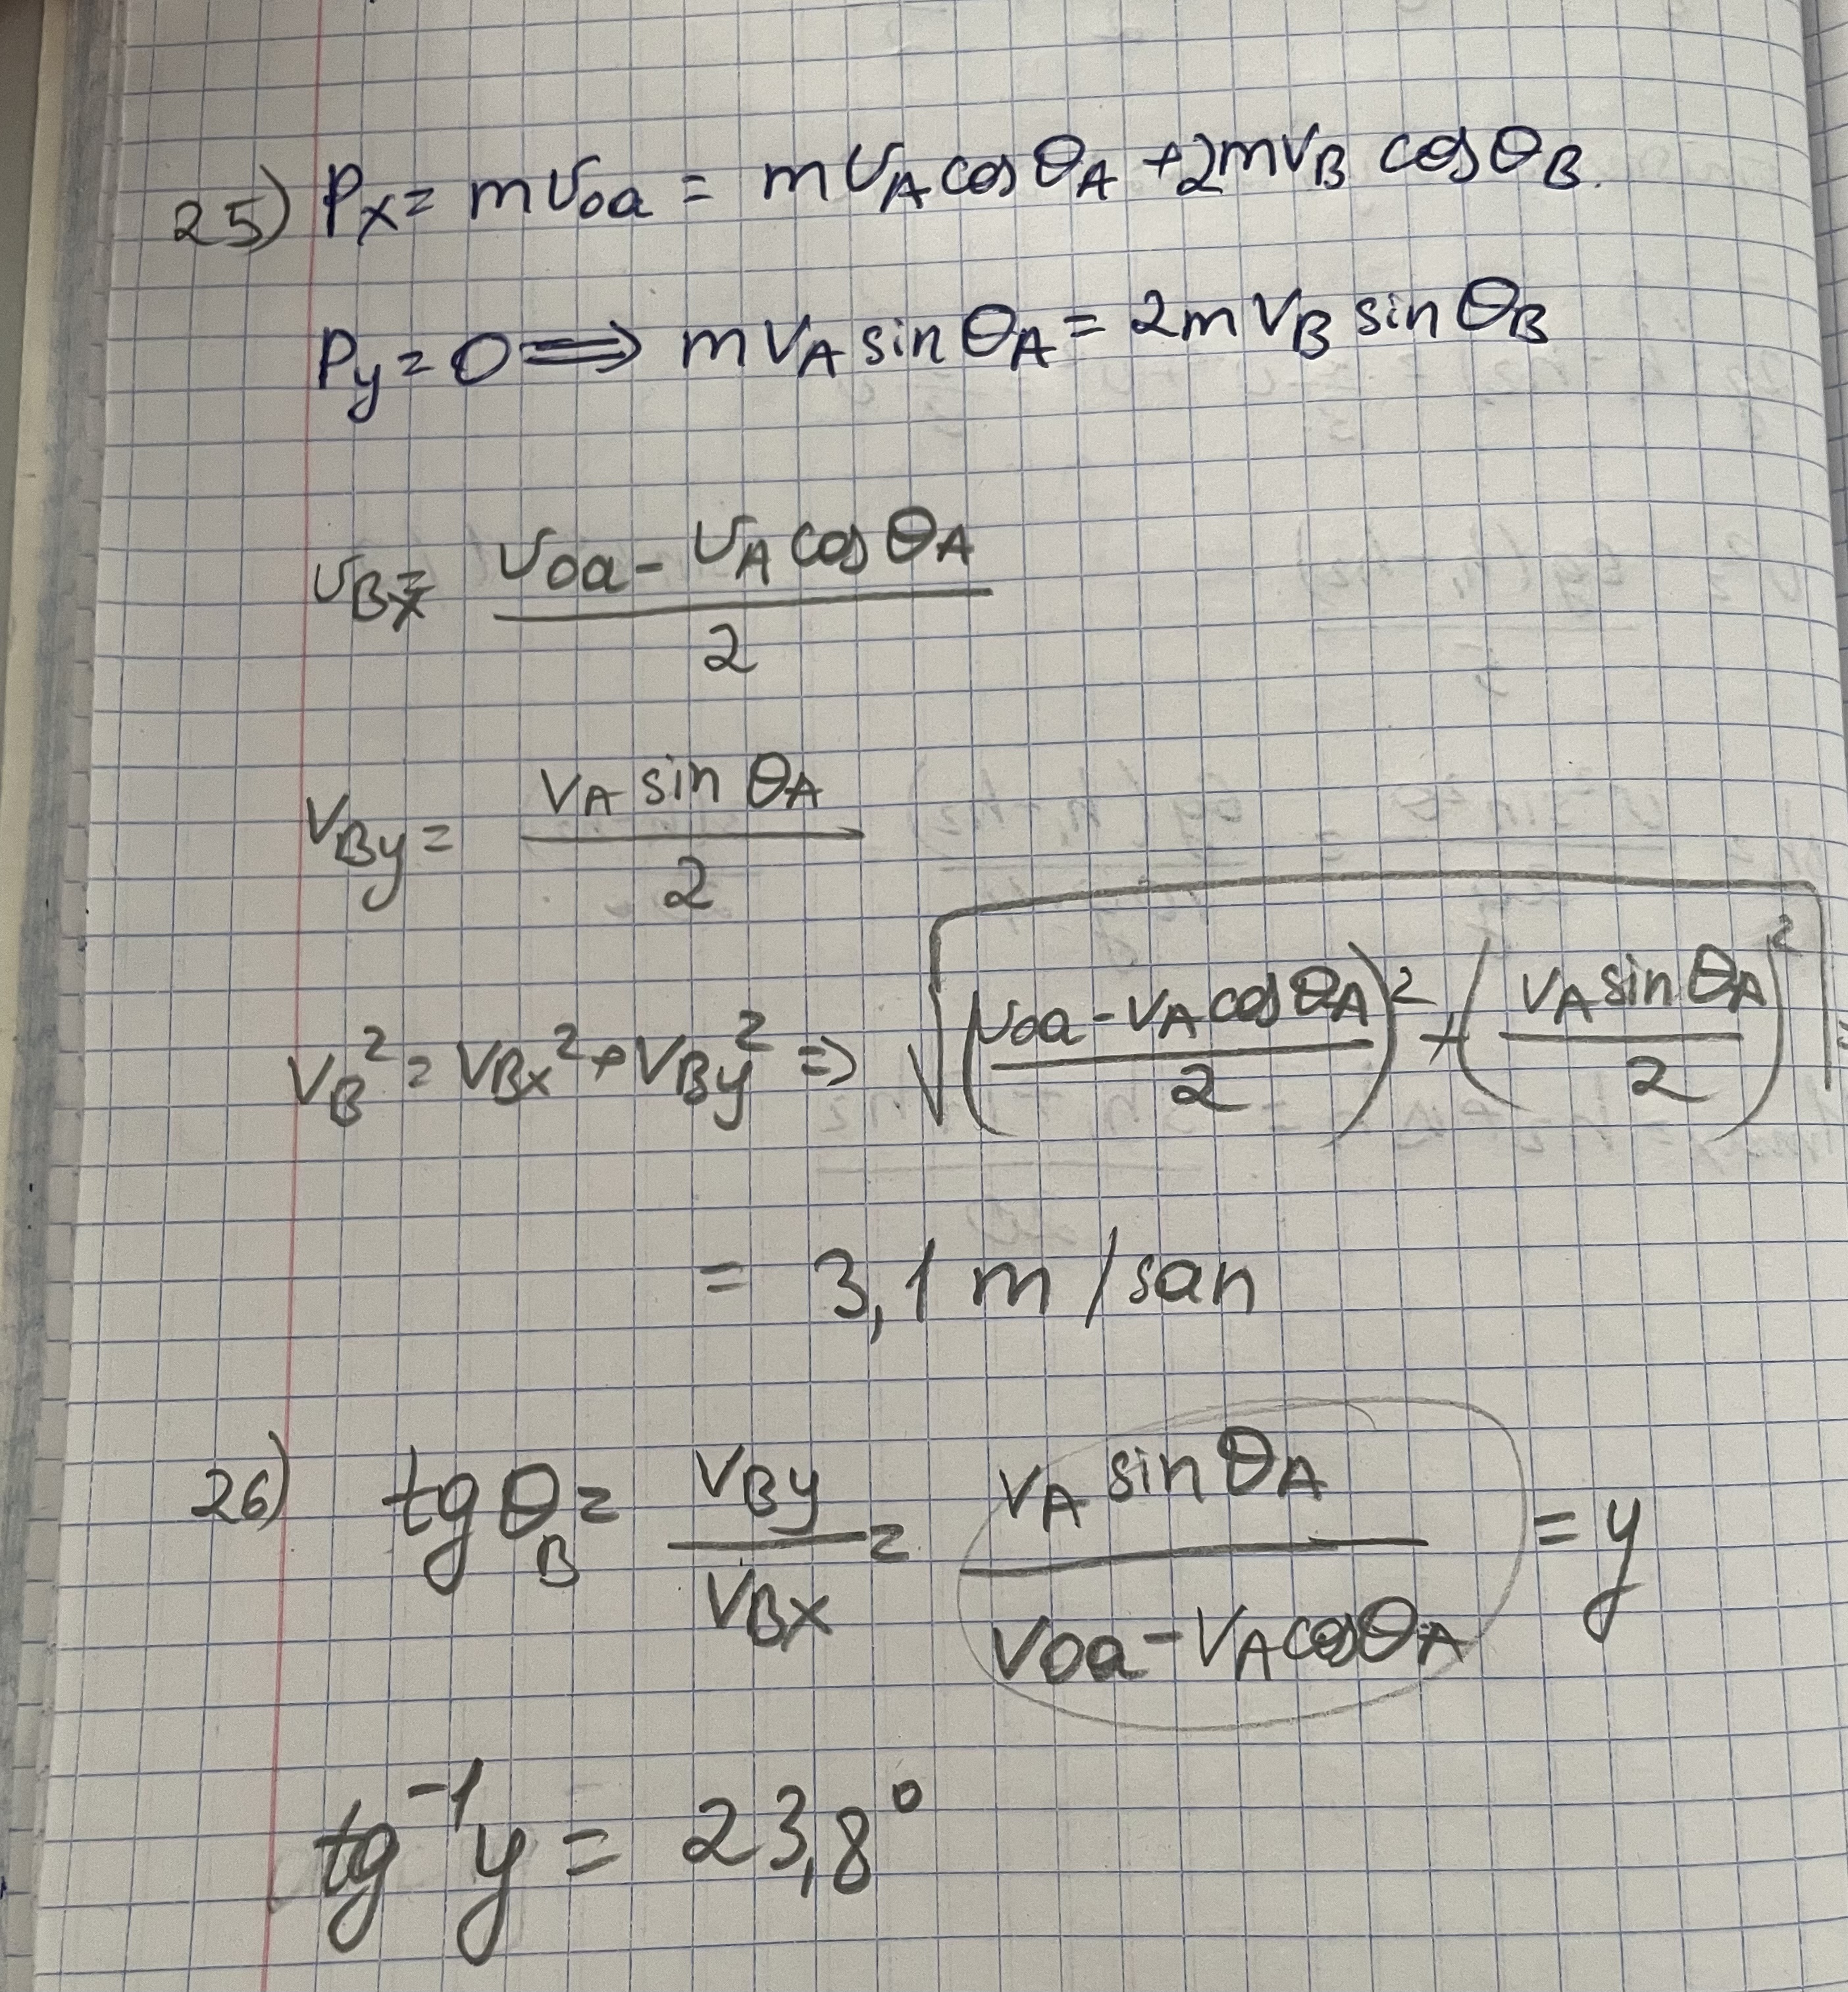 25) Px = mv₀a = mvA cosθA + 2mvB cosθB.
Py = 0 ⟹ mvA sinθA = 2mvB sinθB
vBx = (v₀a - vA cosθA) / 2
vBy = (vA sinθA) / 2
vB² = vBx² + vBy² ⇒ √(((v₀a - vA cosθA) / 2)² + ((vA sinθA) / 2)²) =
= 3,1 m/san
26) tgθB = vBy / vBx = (vA sinθA) / (v₀a - vA cosθA) = y
tg⁻¹y = 23,8°